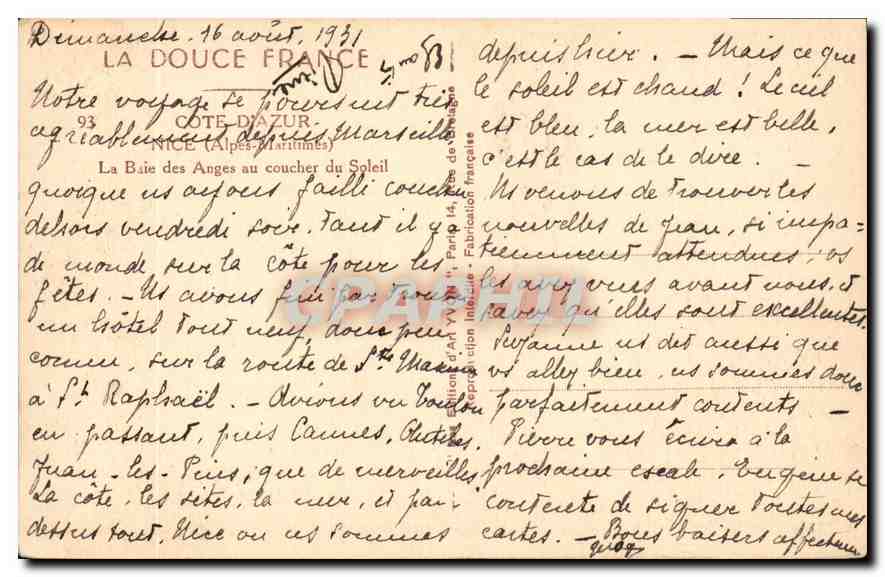 Dimanche. 16 août, 1931
LA DOUCE FRANCE
Notre voyage se poursuit très
93 CÔTE D'AZUR
agréablement depuis Marseille
NICE (Alpes-Maritimes)
La Baie des Anges au coucher du Soleil
quoique ns ayons failli coucher
dehors vendredi soir. tant il y a
de monde, sur la côte pour les
fêtes. - Ns avons fini par trouver
un hôtel tout neuf, donc peu
connu, sur la route de Ste Maxime
à St Raphaël. - Avions vu Toulon
en passant, puis Cannes, Antibes,
Juan-les-Pins, que de merveilles
la côte, les sites, la mer, et par
dessus tout, Nice où ns sommes
Editions d'Art YVON", Paris, 14, Rue de Bretagne
Reproduction Interdite - Fabrication française
CPAPHIL
depuis hier. - Mais ce que
le soleil est chaud ! Le ciel
est bleu, la mer est belle,
c'est le cas de le dire. -
Ns venons de trouver les
nouvelles de Jean, si impa=
tiemment attendues; vs
les avez vues avant nous, et
savez qu'elles sont excellentes.
Suzanne ns dit aussi que
vs allez bien, ns sommes donc
parfaitement contents -
Pierre vous écrira à la
prochaine escale, Eugénie se
contente de signer toutes mes
cartes. - Bons baisers affectueux